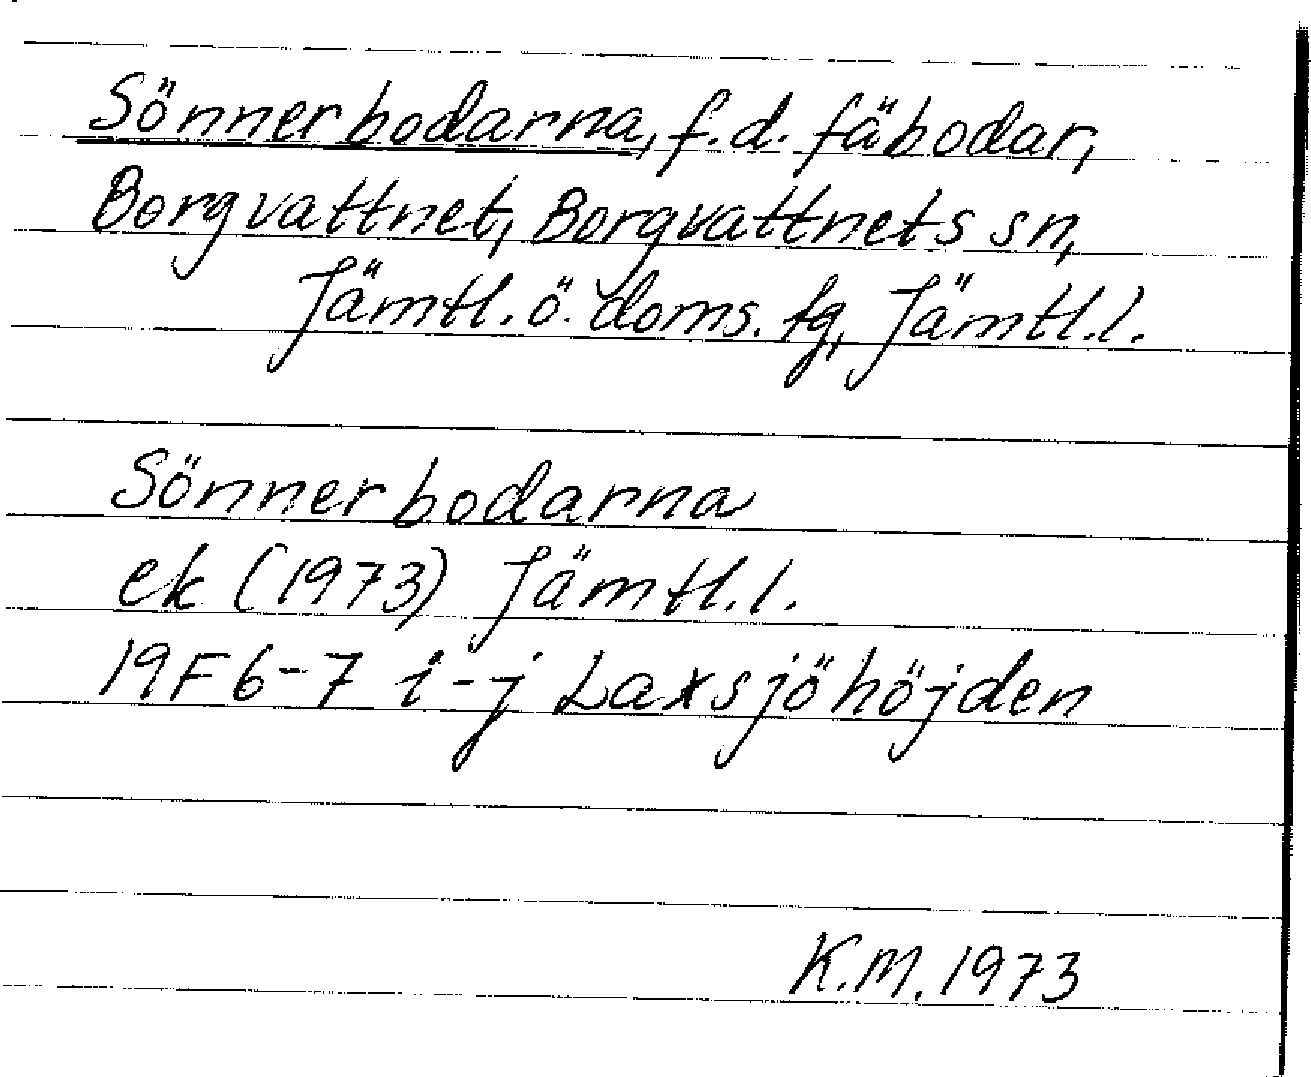 Sönnerbodarna, f.d. fäbodar,
Borgvattnet, Borgvattnets sn,
Jämtl. ö. doms. tg, Jämtl.l.
Sönnerbodarna
ek (1973) Jämtl.l.
19F6-7 i-j Laxsjöhöjden
K.M. 1973